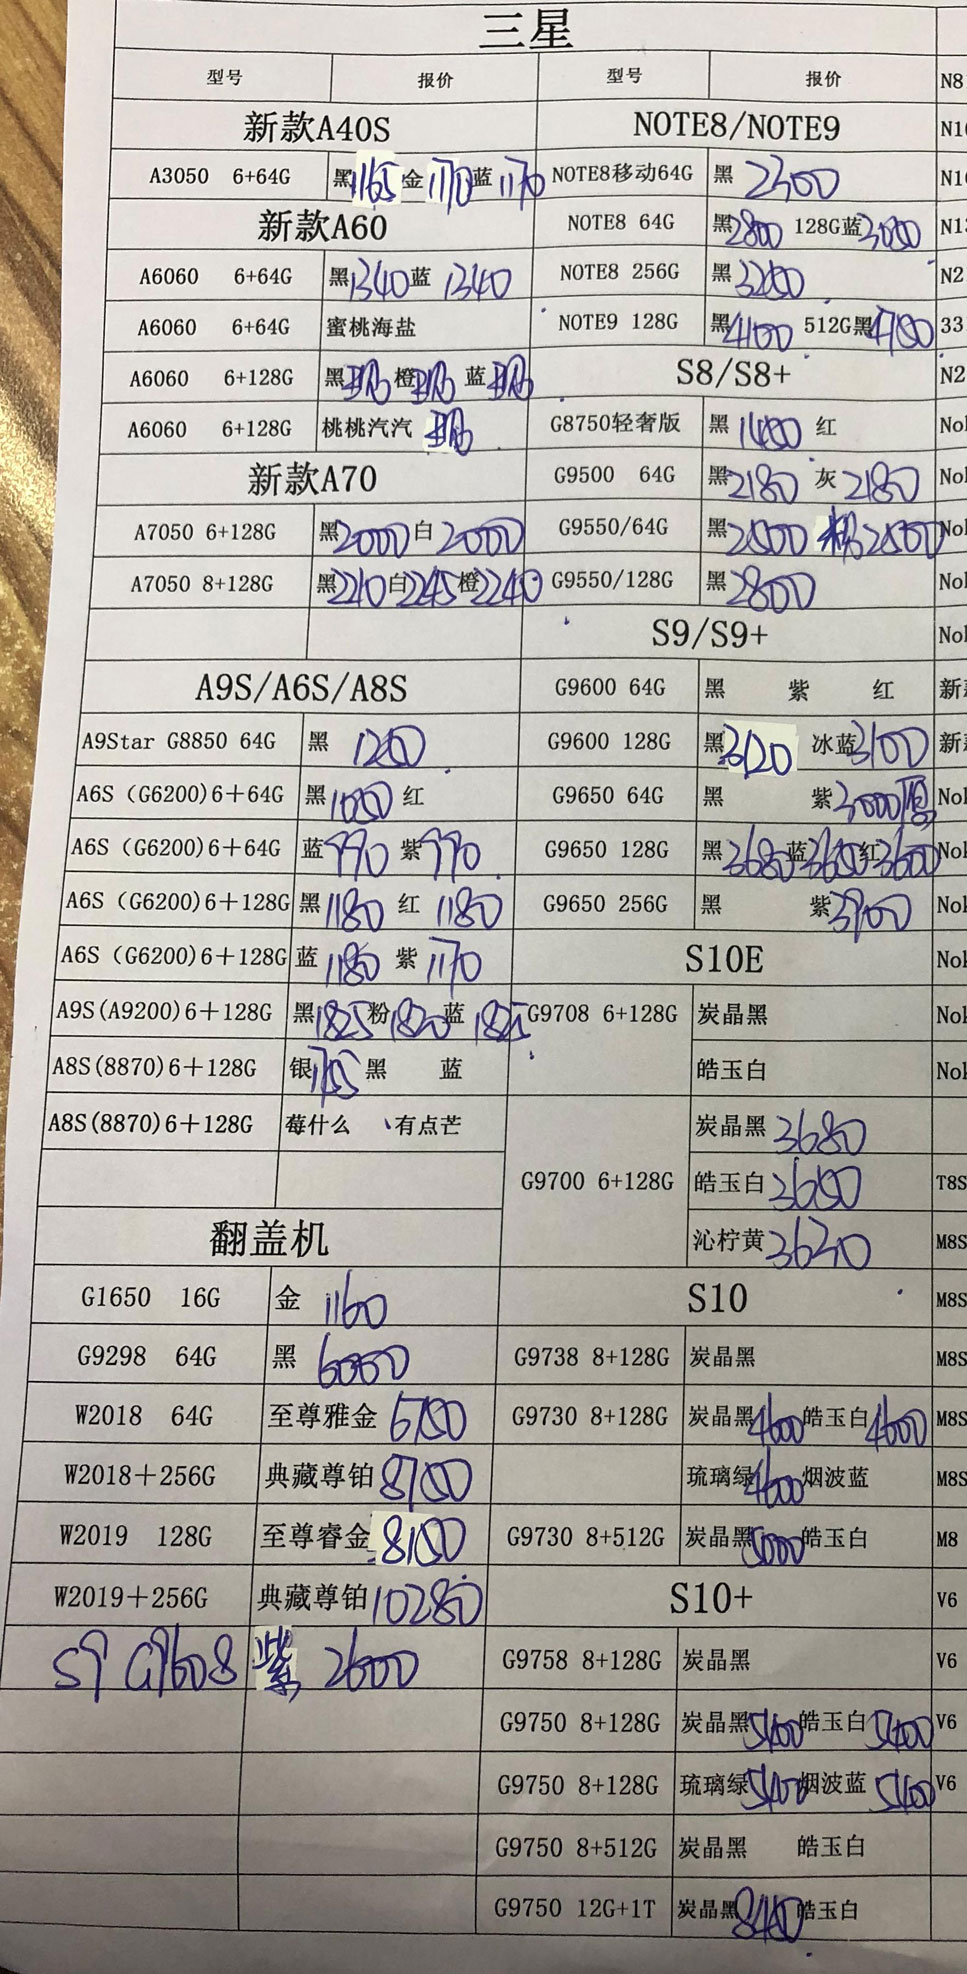 三星
型号 报价 型号 报价 N8
新款A40S NOTE8/NOTE9
A3050 6+64G 黑1165 金1170 蓝1170 NOTE8移动64G 黑 2300
新款A60 NOTE8 64G 黑2800 128G蓝3080
A6060 6+64G 黑1340 蓝1340 NOTE8 256G 黑3200 N2
A6060 6+64G 蜜桃海盐 NOTE9 128G 黑4100 512G黑4700 33
A6060 6+128G 黑 橙 蓝 S8/S8+ N2
A6060 6+128G 桃桃汽汽 G8750轻奢版 黑1480 红
新款A70 G9500 64G 黑2180 灰2180
A7050 6+128G 黑2000 白2000 G9550/64G 黑2500 粉2500
A7050 8+128G 黑2210 白2245 橙2240 G9550/128G 黑2800
S9/S9+
A9S/A6S/A8S G9600 64G 黑 紫 红
A9Star G8850 64G 黑 1200 G9600 128G 黑3120 冰蓝3100
A6S（G6200)6+64G 黑1080 红 G9650 64G 黑 紫3000
A6S（G6200)6+64G 蓝990 紫990 G9650 128G 黑3680 蓝3650 红3600
A6S（G6200)6+128G 黑1180 红1180 G9650 256G 黑 紫3900
A6S（G6200)6+128G 蓝1180 紫1170 S10E
A9S(A9200)6+128G 黑1825 粉1820 蓝1825 G9708 6+128G 炭晶黑
A8S(8870)6+128G 银1755 黑 蓝 皓玉白
A8S(8870)6+128G 莓什么 有点芒 炭晶黑3680
G9700 6+128G 皓玉白3650 T8S
翻盖机 沁柠黄3630 M8S
G1650 16G 金 1160 S10 M8S
G9298 64G 黑 6000 G9738 8+128G 炭晶黑 M8S
W2018 64G 至尊雅金 6700 G9730 8+128G 炭晶黑4600 皓玉白4600 M8S
W2018+256G 典藏尊铂8700 琉璃绿4600 烟波蓝 M8S
W2019 128G 至尊睿金8100 G9730 8+512G 炭晶黑5000 皓玉白 M8
W2019+256G 典藏尊铂10280 S10+ V6
S9 G9608 紫 2600 G9758 8+128G 炭晶黑 V6
G9750 8+128G 炭晶黑5400 皓玉白5400 V6
G9750 8+128G 琉璃绿5400 烟波蓝5400 V6
G9750 8+512G 炭晶黑 皓玉白
G9750 12G+1T 炭晶黑8400 皓玉白